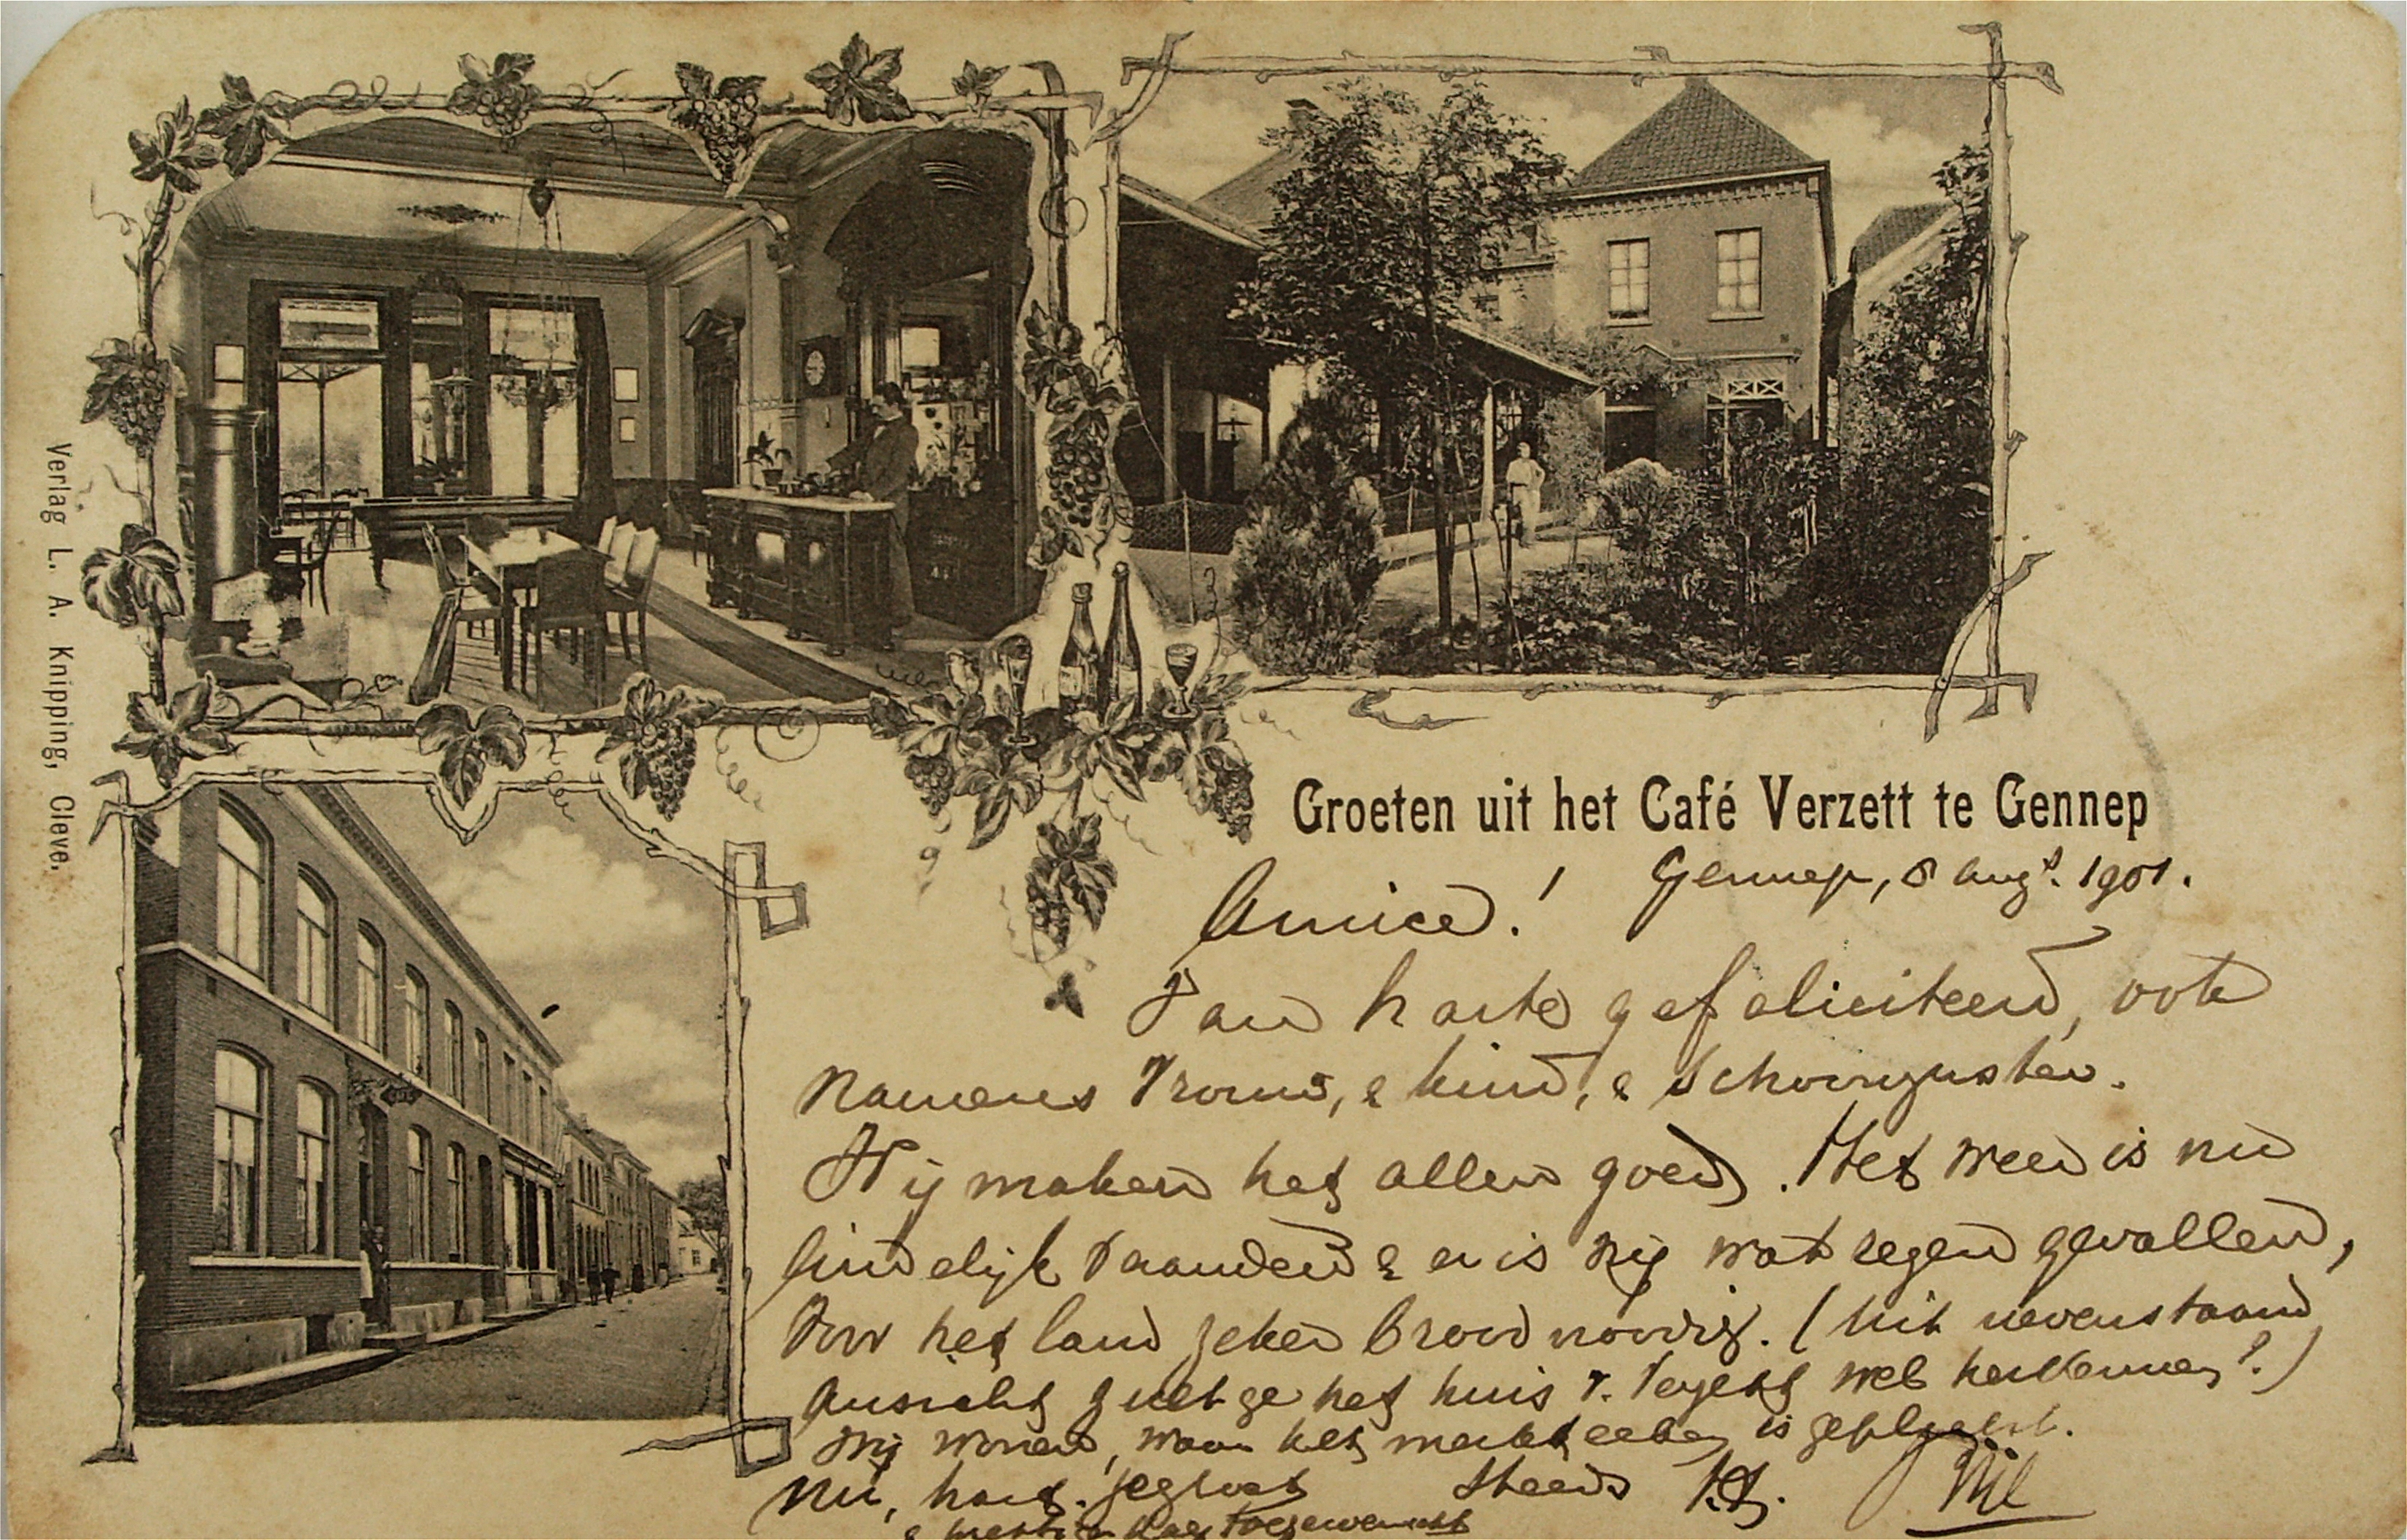 Verlag L. A. Knipping, Cleve.
Groeten uit het Café Verzett te Gennep
Gennep, 8 Augt. 1901.
Amice!
Van harte gefeliciteerd, ook
namens Vrouw, & kind, & schoonzuster.
Wij maken het allen goed. Het weer is nu
eindelijk veranderd & er is vrij wat regen gevallen,
Voor het land zeker broodnoodig. (Uit nevenstaand
Ansicht zult ge het huis v. Verzett wel herkennen?)
Wij wonen, waar het is geplaatst.
Nu, hart. gegroet Steeds t.t.
& toegewenscht